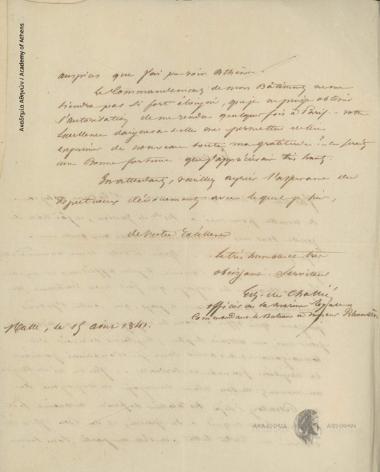 auspices que j'ai pu voir Athènes.
Le Commandement de mon Bâtiment ne me
tiendra pas si fort éloigné, que je ne puisse obtenir
l'autorisation de me rendre quelque fois à Paris. votre
Excellence daignera-t-elle me permettre de lui
exprimer de nouveau toute ma gratitude? ce serait
une bonne fortune que j'apprécierais très haut.
En attendant, veuillez agréer l'assurance du
respectueux dévouement avec lequel je suis,
de votre Excellence
le très humble et très
obéissant Serviteur
de Challié
officier de la marine Royale
Commandant le Bateau à vapeur
Malte, le 15 août 1841.
Ακαδημία Αθηνών / Academy of Athens
ΑΚΑΔΗΜΙΑ ΑΘΗΝΩΝ